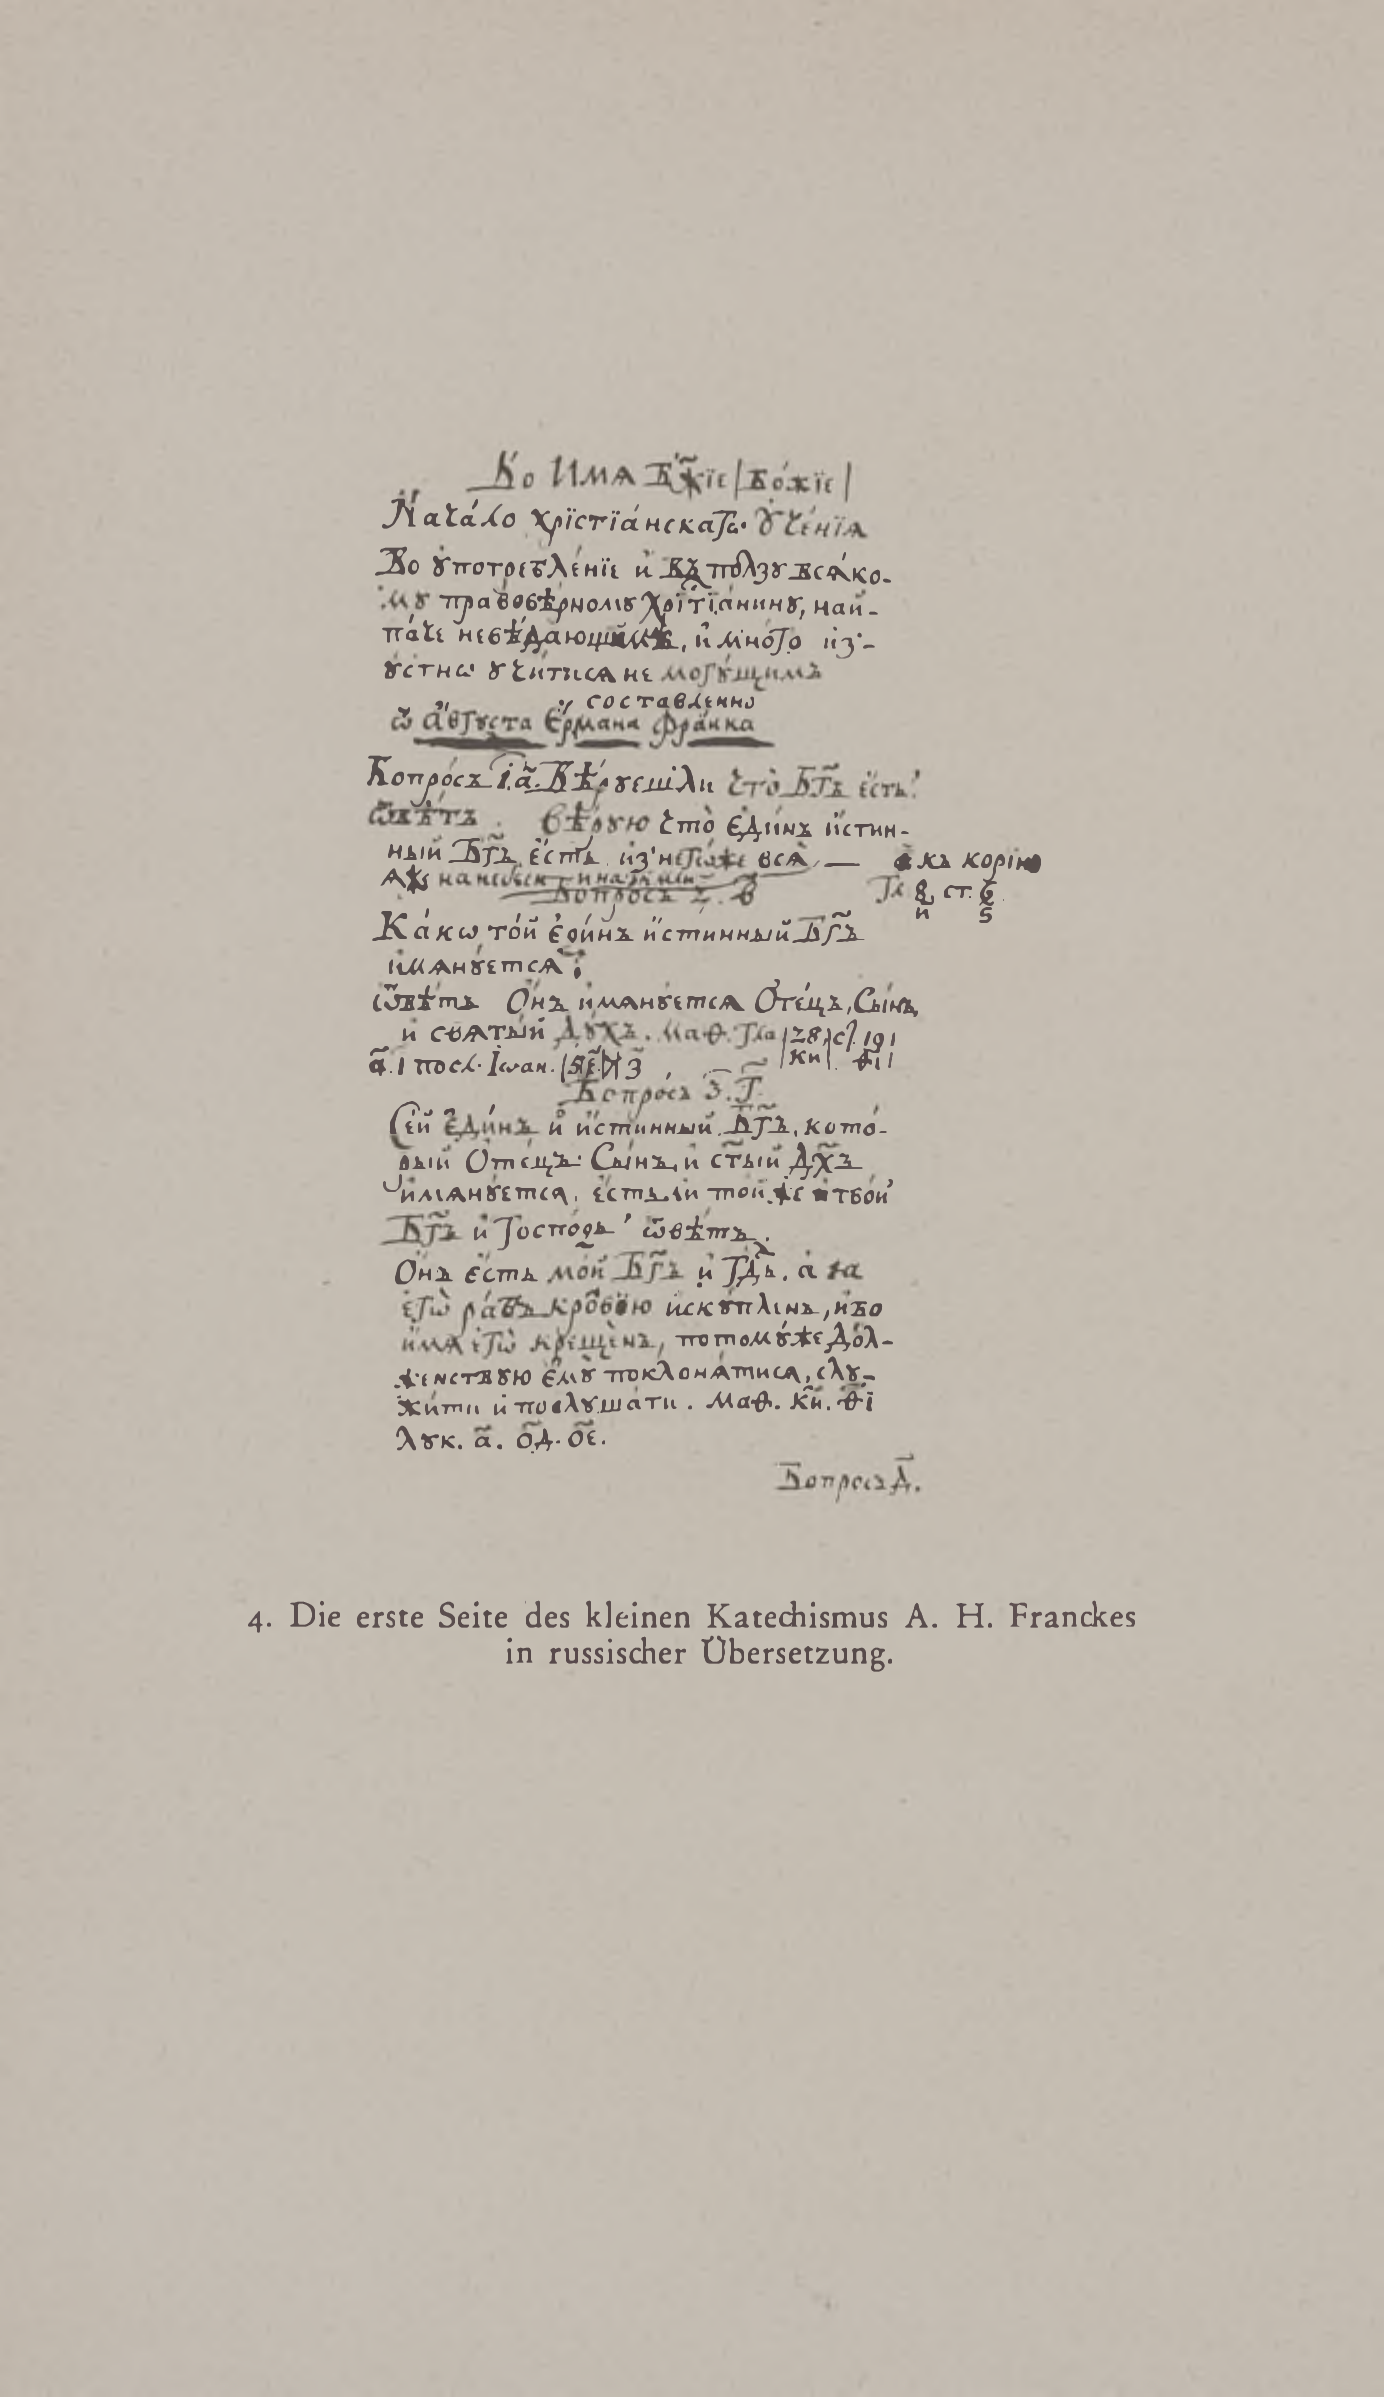 Во Имѧ Бж҃їе | Бо́жїе |
Нача́ло хрїстїа́нскагѡ ᲂуче́нїѧ
Во ᲂупотребле́нїе и въ по́лзꙋ всѧ́ко-
мꙋ правовѣ́рномꙋ Хрїтїа́нинꙋ, най-
па́че невѣ́дающимъ, и мно́го из̾-
ꙋ́стнѡ ᲂучи́тисѧ не могꙋ́щимъ
составленно
ѿ А҆́ѵгꙋста Е҆́рмана Фра́нка
Вопро́съ 1. а҃. Вѣ́рꙋеши ли что̀ Бг҃ъ є҆́сть?
ѿвѣ́тъ. вѣ́рꙋю что̀ є҆ди́нъ и҆́стин-
ный Бг҃ъ є҆́сть из̾негѡ́же всѧ̀, — а къ корін
ѧже на небеси и на земли Гл 8 ст. 6
Вопро́съ 2. в҃ и ѕ
Ка́кѡ то́й є҆ди́нъ и҆́стинный Бг҃ъ
имѧнꙋ́етсѧ;
ѿвѣ́тъ О҆́нъ имѧнꙋ́етсѧ Ѻ҆те́цъ, Сы́нъ,
и свѧты́й Дꙋ́хъ. Маѳ. Гла | 28, | с҃. 19 |
а҃. 1 посл. Іѡан. | 5 | е҃. | 7 | з҃ ки | ѳі |
Вопро́съ 3. г҃.
Се́й є҆ди́нъ и҆ и҆́стинный Бг҃ъ, кото́-
рый Ѻ҆те́цъ: Сы́нъ, и ст҃ый Дх҃ъ
имѧнꙋ́етсѧ, є҆́сть ли то́й же и тво́й
Бг҃ъ и Госпо́дь ѿвѣ́тъ.
О҆́нъ є҆́сть мо́й Бг҃ъ и҆ Гд҃ь. а за
є҆гѡ̀ ра́бъ кро́вїю искꙋ́пленъ, и во
и҆́мѧ є҆гѡ̀ креще́нъ, потомꙋ́же до́л-
женствꙋю є҆мꙋ̀ поклонѧ́тисѧ, слꙋ-
жи́ти и послꙋша́ти. Маѳ. к҃и. ѳ҃і
лꙋк. а҃. о҃д. о҃е.
Вопросъ д҃.
4. Die erste Seite des kleinen Katechismus A. H. Franckes
in russischer Übersetzung.